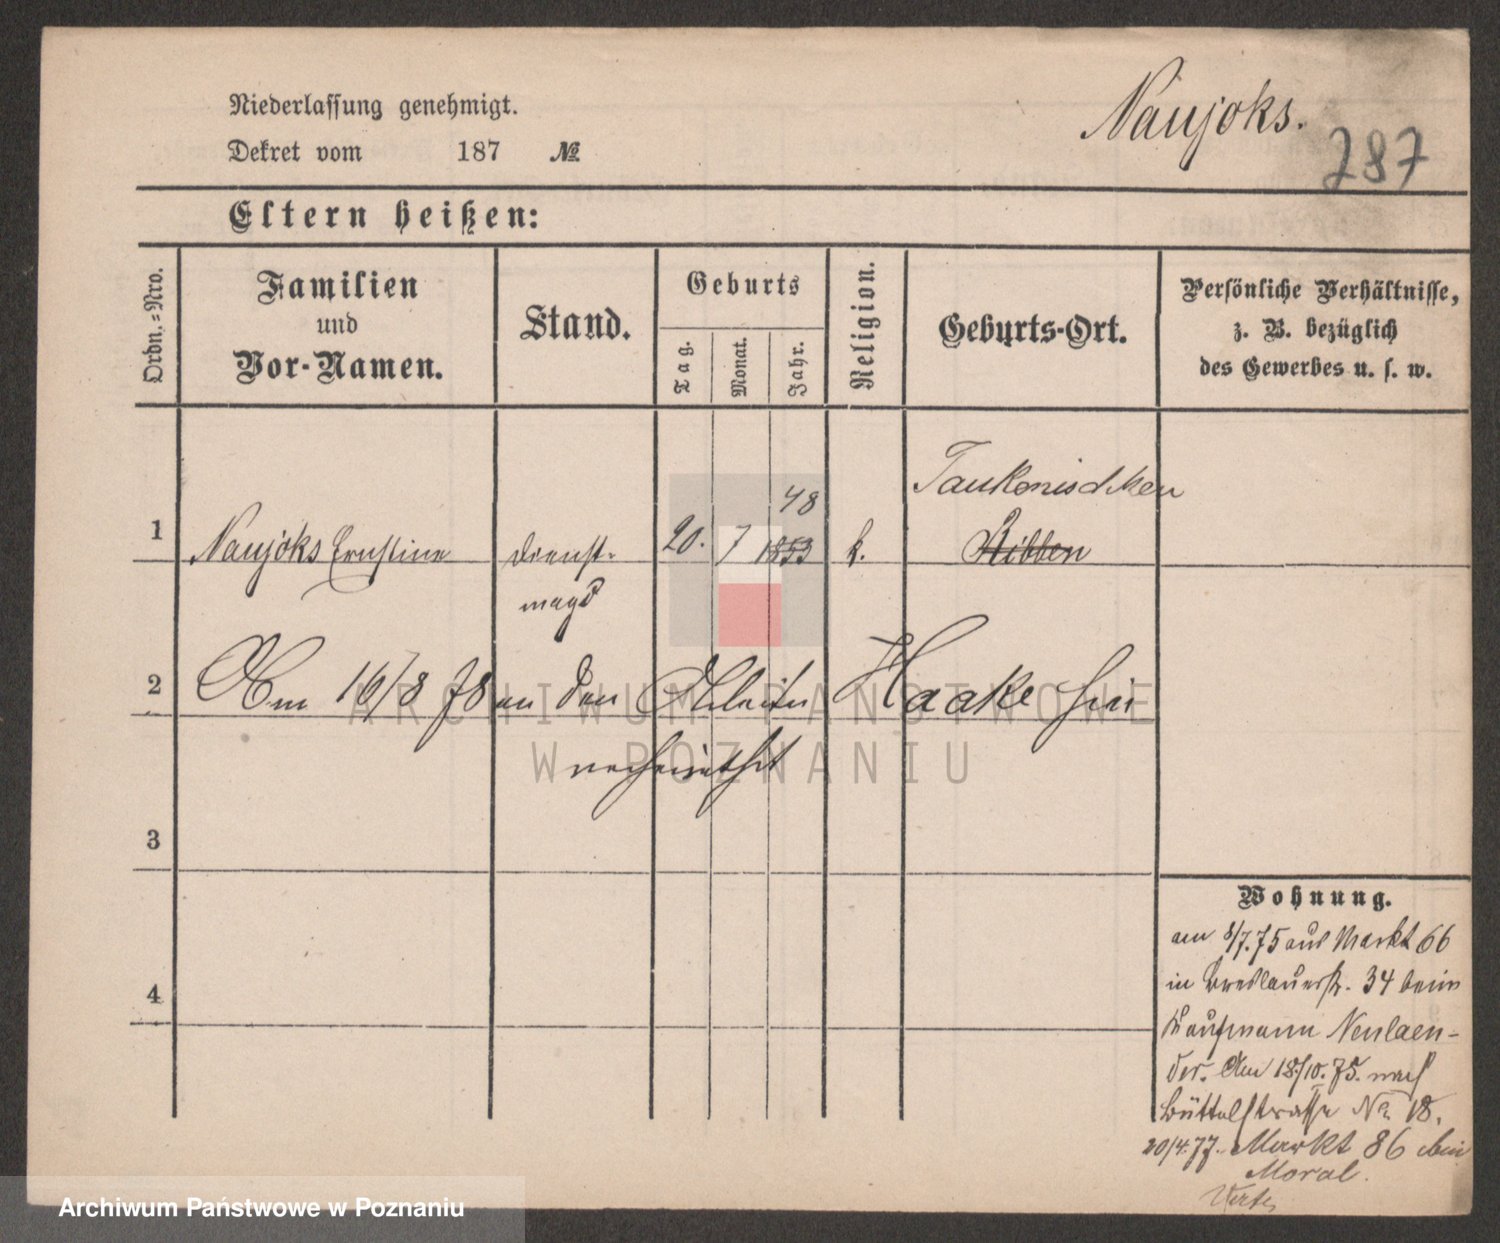 Niederlassung genehmigt.
Dekret vom 187 №
Naujoks.
287
Eltern heißen:
Ordn.=Nro.
Familien
und
Vor-Namen.
Stand.
Geburts
Tag.
Monat.
Jahr.
Religion.
Geburts-Ort.
Persönliche Verhältnisse,
z. B. bezüglich
des Gewerbes u. s. w.
Taukenischken
48
1 Naujoks Ernstine Dienst-
magd
20. 7 1853 k. Stibben
2 Am 16/8 78 an den Arbeiter Haake hier
verheirathet
3
4
Wohnung.
am 8/7.75 aus Markt 66
in Breslauerstr. 34 beim
Kaufmann Neulaen-
der. Am 18/10.75. nach
Büttelstrasse No 18.
20/4.77. Markt 86 bei
Moral.
ARCHIWUM PAŃSTWOWE
W POZNANIU
Archiwum Państwowe w Poznaniu